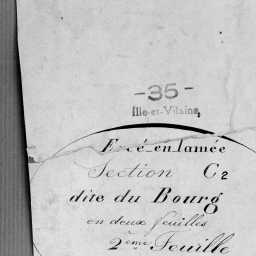 -35-
Ille-et-Vilaine,
Ercé-en-lamée
Section C2
dite du Bourg
en deux feuilles
2ème Feuille